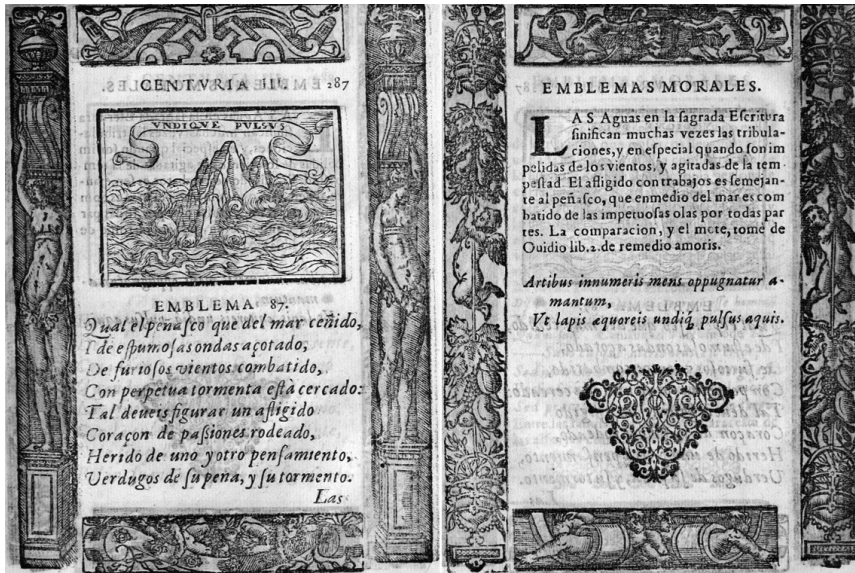 CENTVRIA III. 287
VNDIQVE PVLSVS
EMBLEMA. 87.
Qual el peñasco que del mar ceñido,
I de espumosas ondas açotado,
De furiosos vientos combatido,
Con perpetua tormenta està cercado:
Tal deveis figurar un afligido
Coraçon de passiones rodeado,
Herido de uno y otro pensamiento,
Verdugos de su pena, y su tormento.
Las
EMBLEMAS MORALES.
LAS Aguas en la sagrada Escritura
sinifican muchas vezes las tribula-
ciones, y en especial quando son im
pelidas de los vientos, y agitadas de la tem-
pestad. El afligido con trabajos es semejan-
te al peñasco, que enmedio del mar es com
batido de las impetuosas olas por todas par
tes. La comparacion, y el mote, tome de
Ouidio lib.2. de remedio amoris.
Artibus innumeris mens oppugnatur a-
mantum,
Vt lapis æquoreis undiq; pulsus aquis.